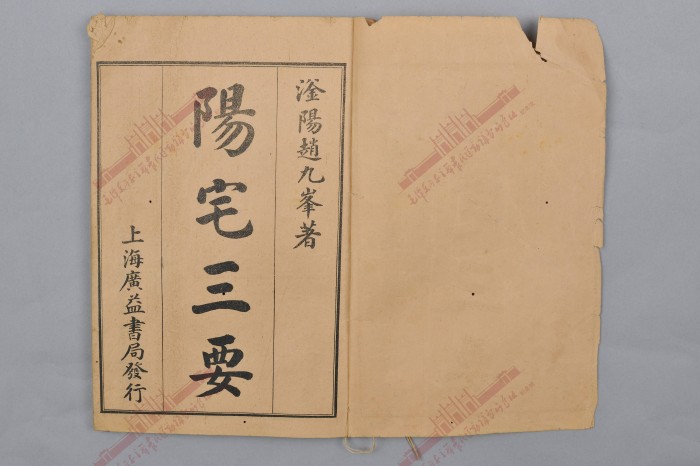 滏陽趙九峯著
陽宅三要
上海廣益書局發行